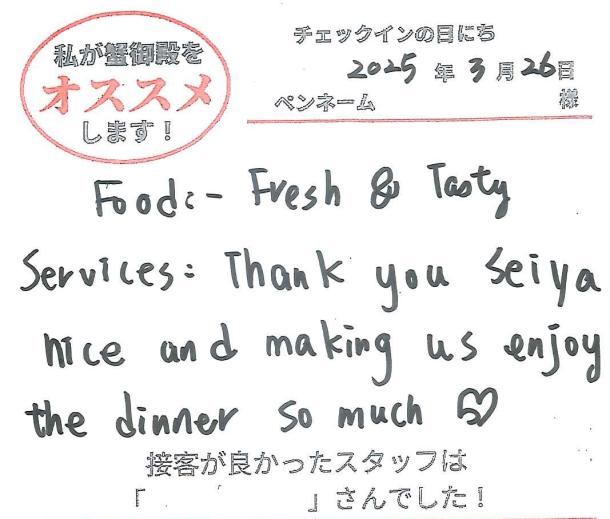 私が蟹御殿を
オススメ
します！
チェックインの日にち
2025 年 3 月 26 日
ペンネーム 様
Food:- Fresh & Tasty
Services: Thank you Seiya
nice and making us enjoy
the dinner so much ♡
接客が良かったスタッフは
「 」さんでした！